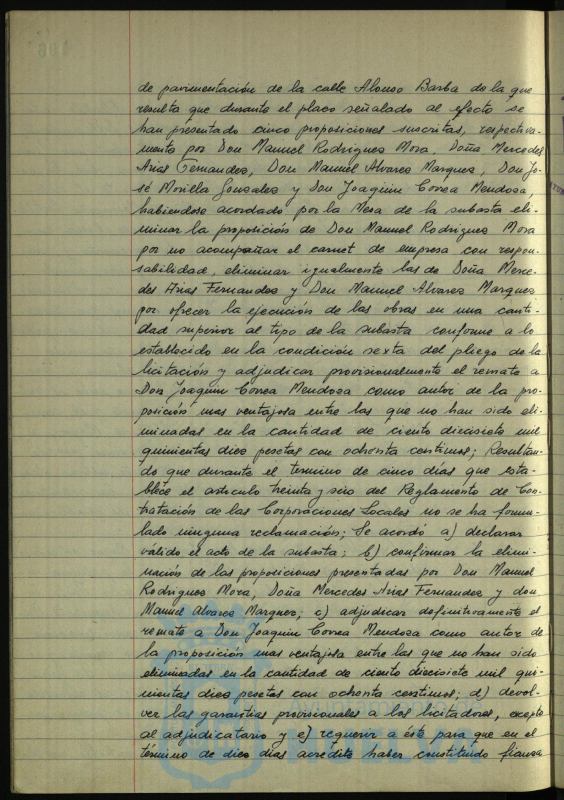 de pavimentación de la calle Alonso Barba de la que
resulta que durante el plazo señalado al efecto se
han presentado cinco proposiciones suscritas, respectiva-
mente por Don Manuel Rodriguez Mora, Doña Mercedes
Arias Fernandez, Don Manuel Alvarez Marquez, Don Jo-
sé Morilla Gonzalez y Don Joaquin Correa Mendoza,
habiendose acordado por la Mesa de la subasta eli-
minar la proposición de Don Manuel Rodriguez Mora
por no acompañar el carnet de empresa con respon-
sabilidad, eliminar igualmente las de Doña Merce-
des Arias Fernandez y Don Manuel Alvarez Marquez
por ofrecer la ejecución de las obras en una canti-
dad superior al tipo de la subasta conforme a lo
establecido en la condición sexta del pliego de la
licitación y adjudicar provisionalmente el remate a
Don Joaquin Correa Mendoza como autor de la pro-
posición mas ventajosa entre las que no han sido eli-
minadas en la cantidad de ciento diecisiete mil
quinientas diez pesetas con ochenta centimos; Resultan-
do que durante el termino de cinco dias que esta-
blece el articulo treinta y seis del Reglamento de Con-
tratación de las Corporaciones Locales no se ha formu-
lado ninguna reclamación; Se acordó a) declarar
válido el acto de la subasta; b) confirmar la elimi-
nación de las proposiciones presentadas por Don Manuel
Rodriguez Mora, Doña Mercedes Arias Fernandez y don
Manuel Alvarez Marquez; c) adjudicar definitivamente el
remate a Don Joaquin Correa Mendoza como autor de
la proposición mas ventajosa entre las que no han sido
eliminadas en la cantidad de ciento diecisiete mil qui-
nientas diez pesetas con ochenta centimos; d) devol-
ver las garantias provisionales a los licitadores, excepto
al adjudicatario y e) requerir a éste para que en el
término de diez dias acredite haber constituido fianza